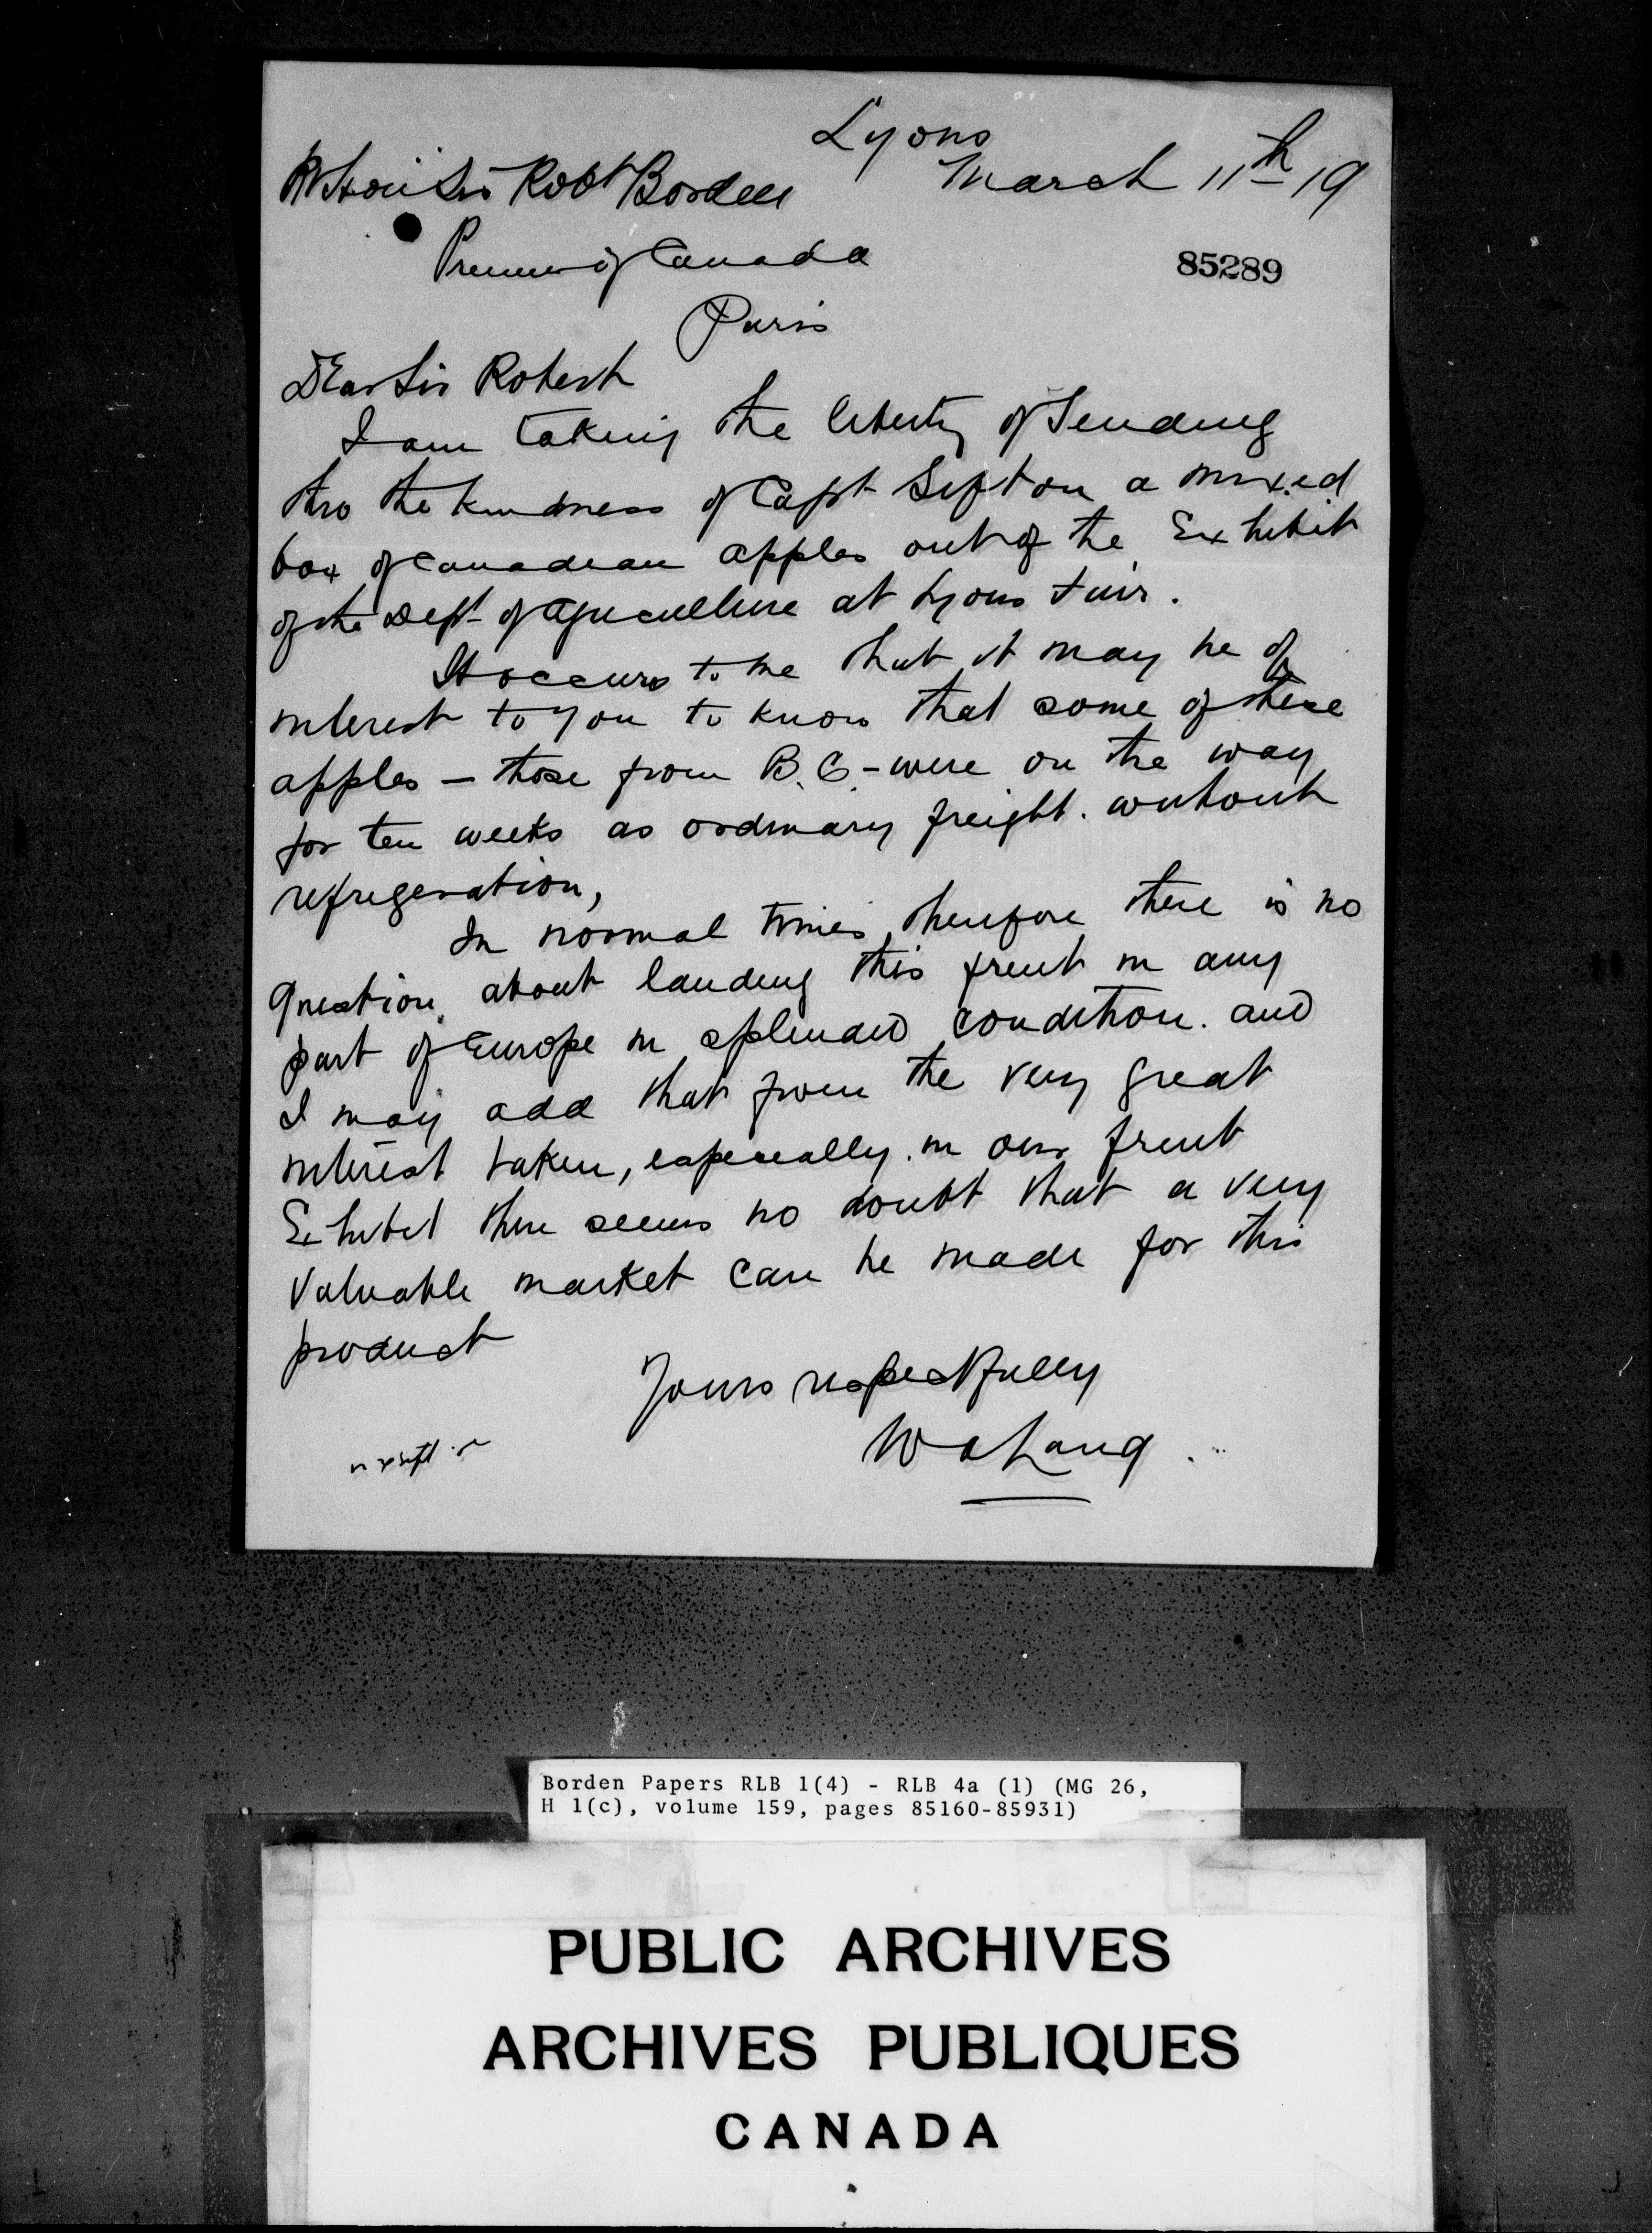 Lyons
March 11th 19
Rt Hon Sir Robt Borden
Premier of Canada
85289
Paris
Dear Sir Robert
I am taking the liberty of sending
thro the kindness of Capt Sifton a mixed
box of Canadian apples out of the Exhibit
of the Dept of Agriculture at Lyons Fair.
It occurs to me that it may be of
interest to you to know that some of these
apples — those from B.C. - were on the way
for ten weeks as ordinary freight. without
refrigeration,
In normal times therefore there is no
question about landing this fruit in any
part of Europe in splendid condition. and
I may add that from the very great
interest taken, especially in our fruit
Exhibit there seems no doubt that a very
valuable market can be made for this
product
Yours respectfully
W A Lang
Borden Papers RLB 1(4) - RLB 4a (1) (MG 26,
H 1(c), volume 159, pages 85160-85931)
PUBLIC ARCHIVES
ARCHIVES PUBLIQUES
CANADA